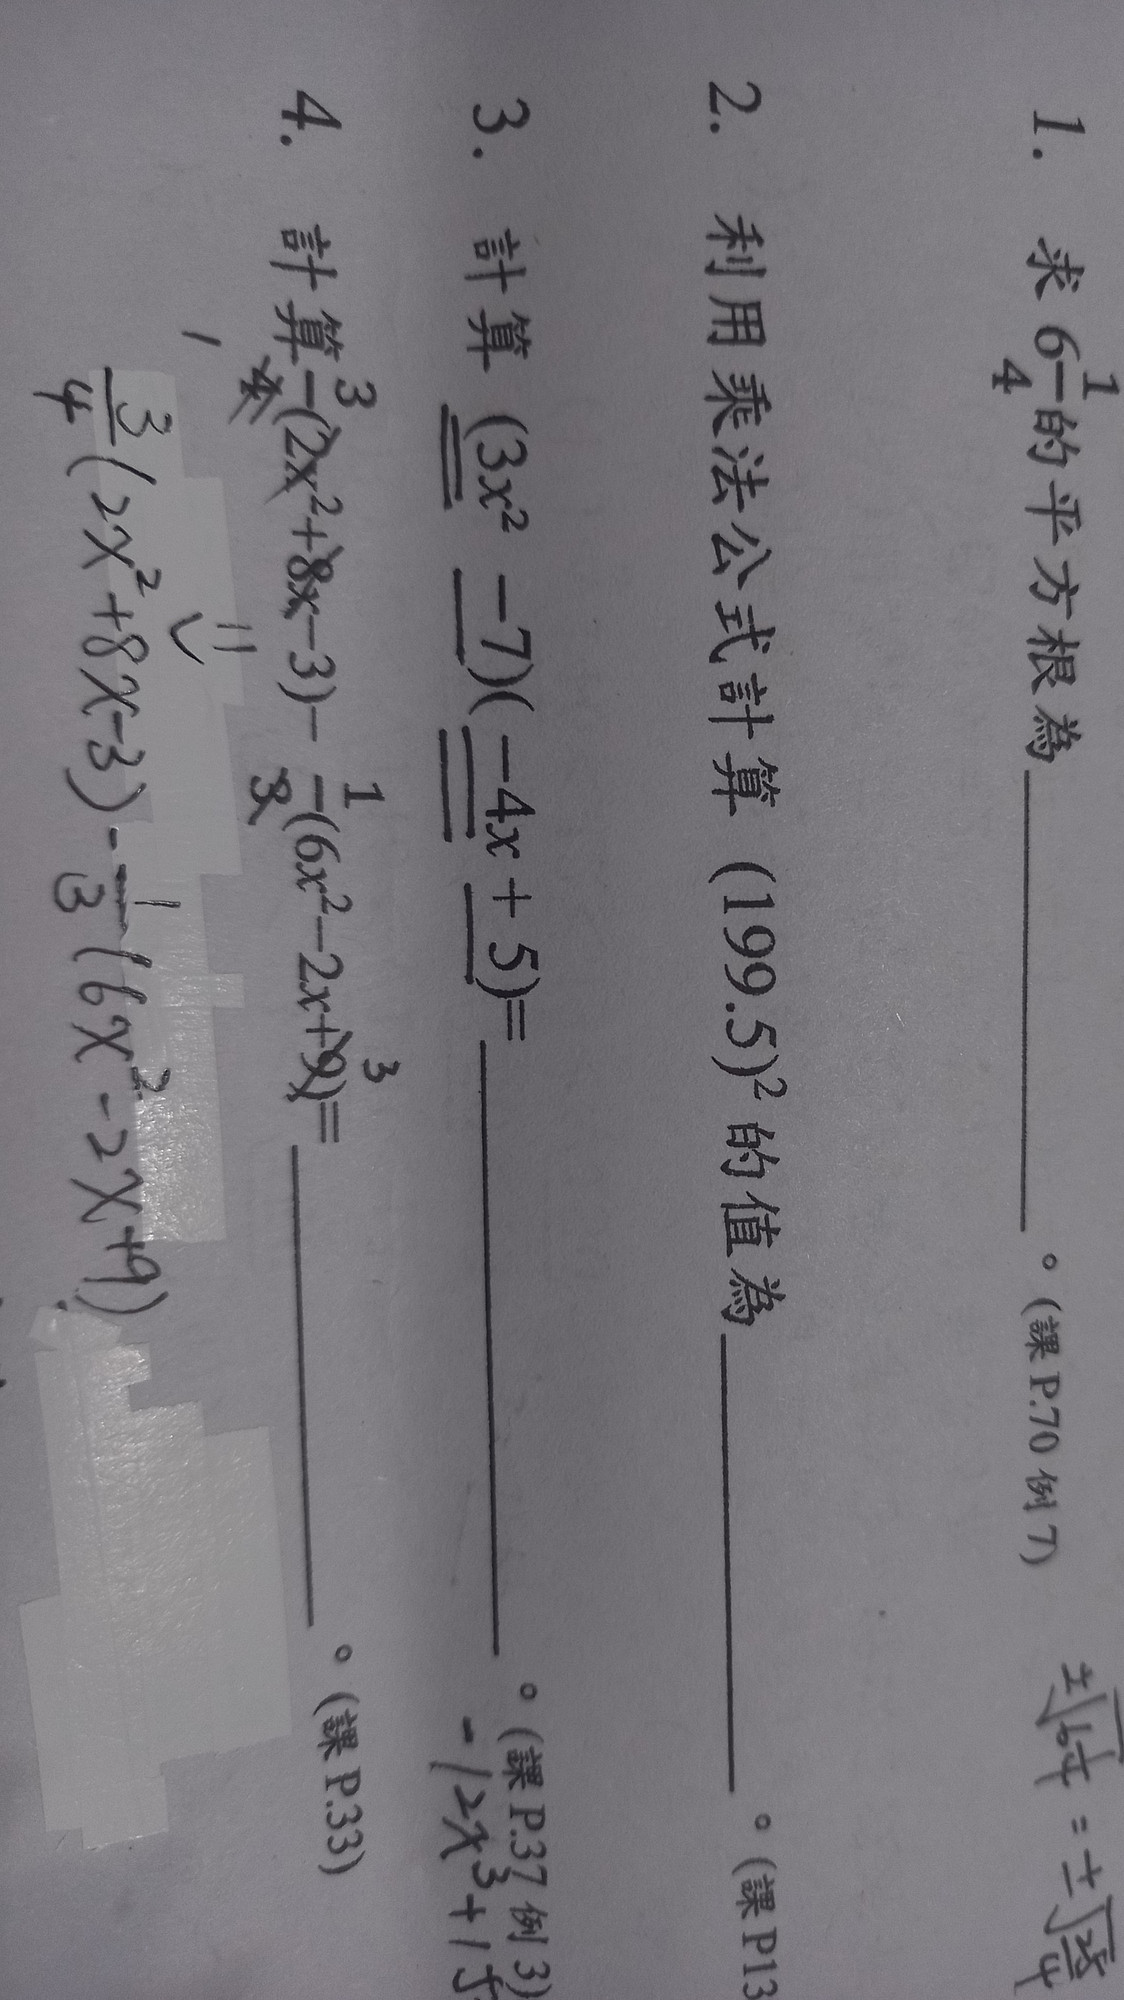 1. 求 6 1/4 的平方根為________。(課 P.70 例 7)
±√(6 1/4) = ±√(25/4)
2. 利用乘法公式計算 (199.5)² 的值為________。(課 P13
3. 計算 (3x² －7)(－4x + 5)=________。(課 P.37 例 3)
-12x³+15
4. 計算 3/4(2x²+8x－3)－1/3(6x²－2x+9)=________。(課 P.33)
3
3/4(2x²+8x-3)-1/3(6x²-2x+9)